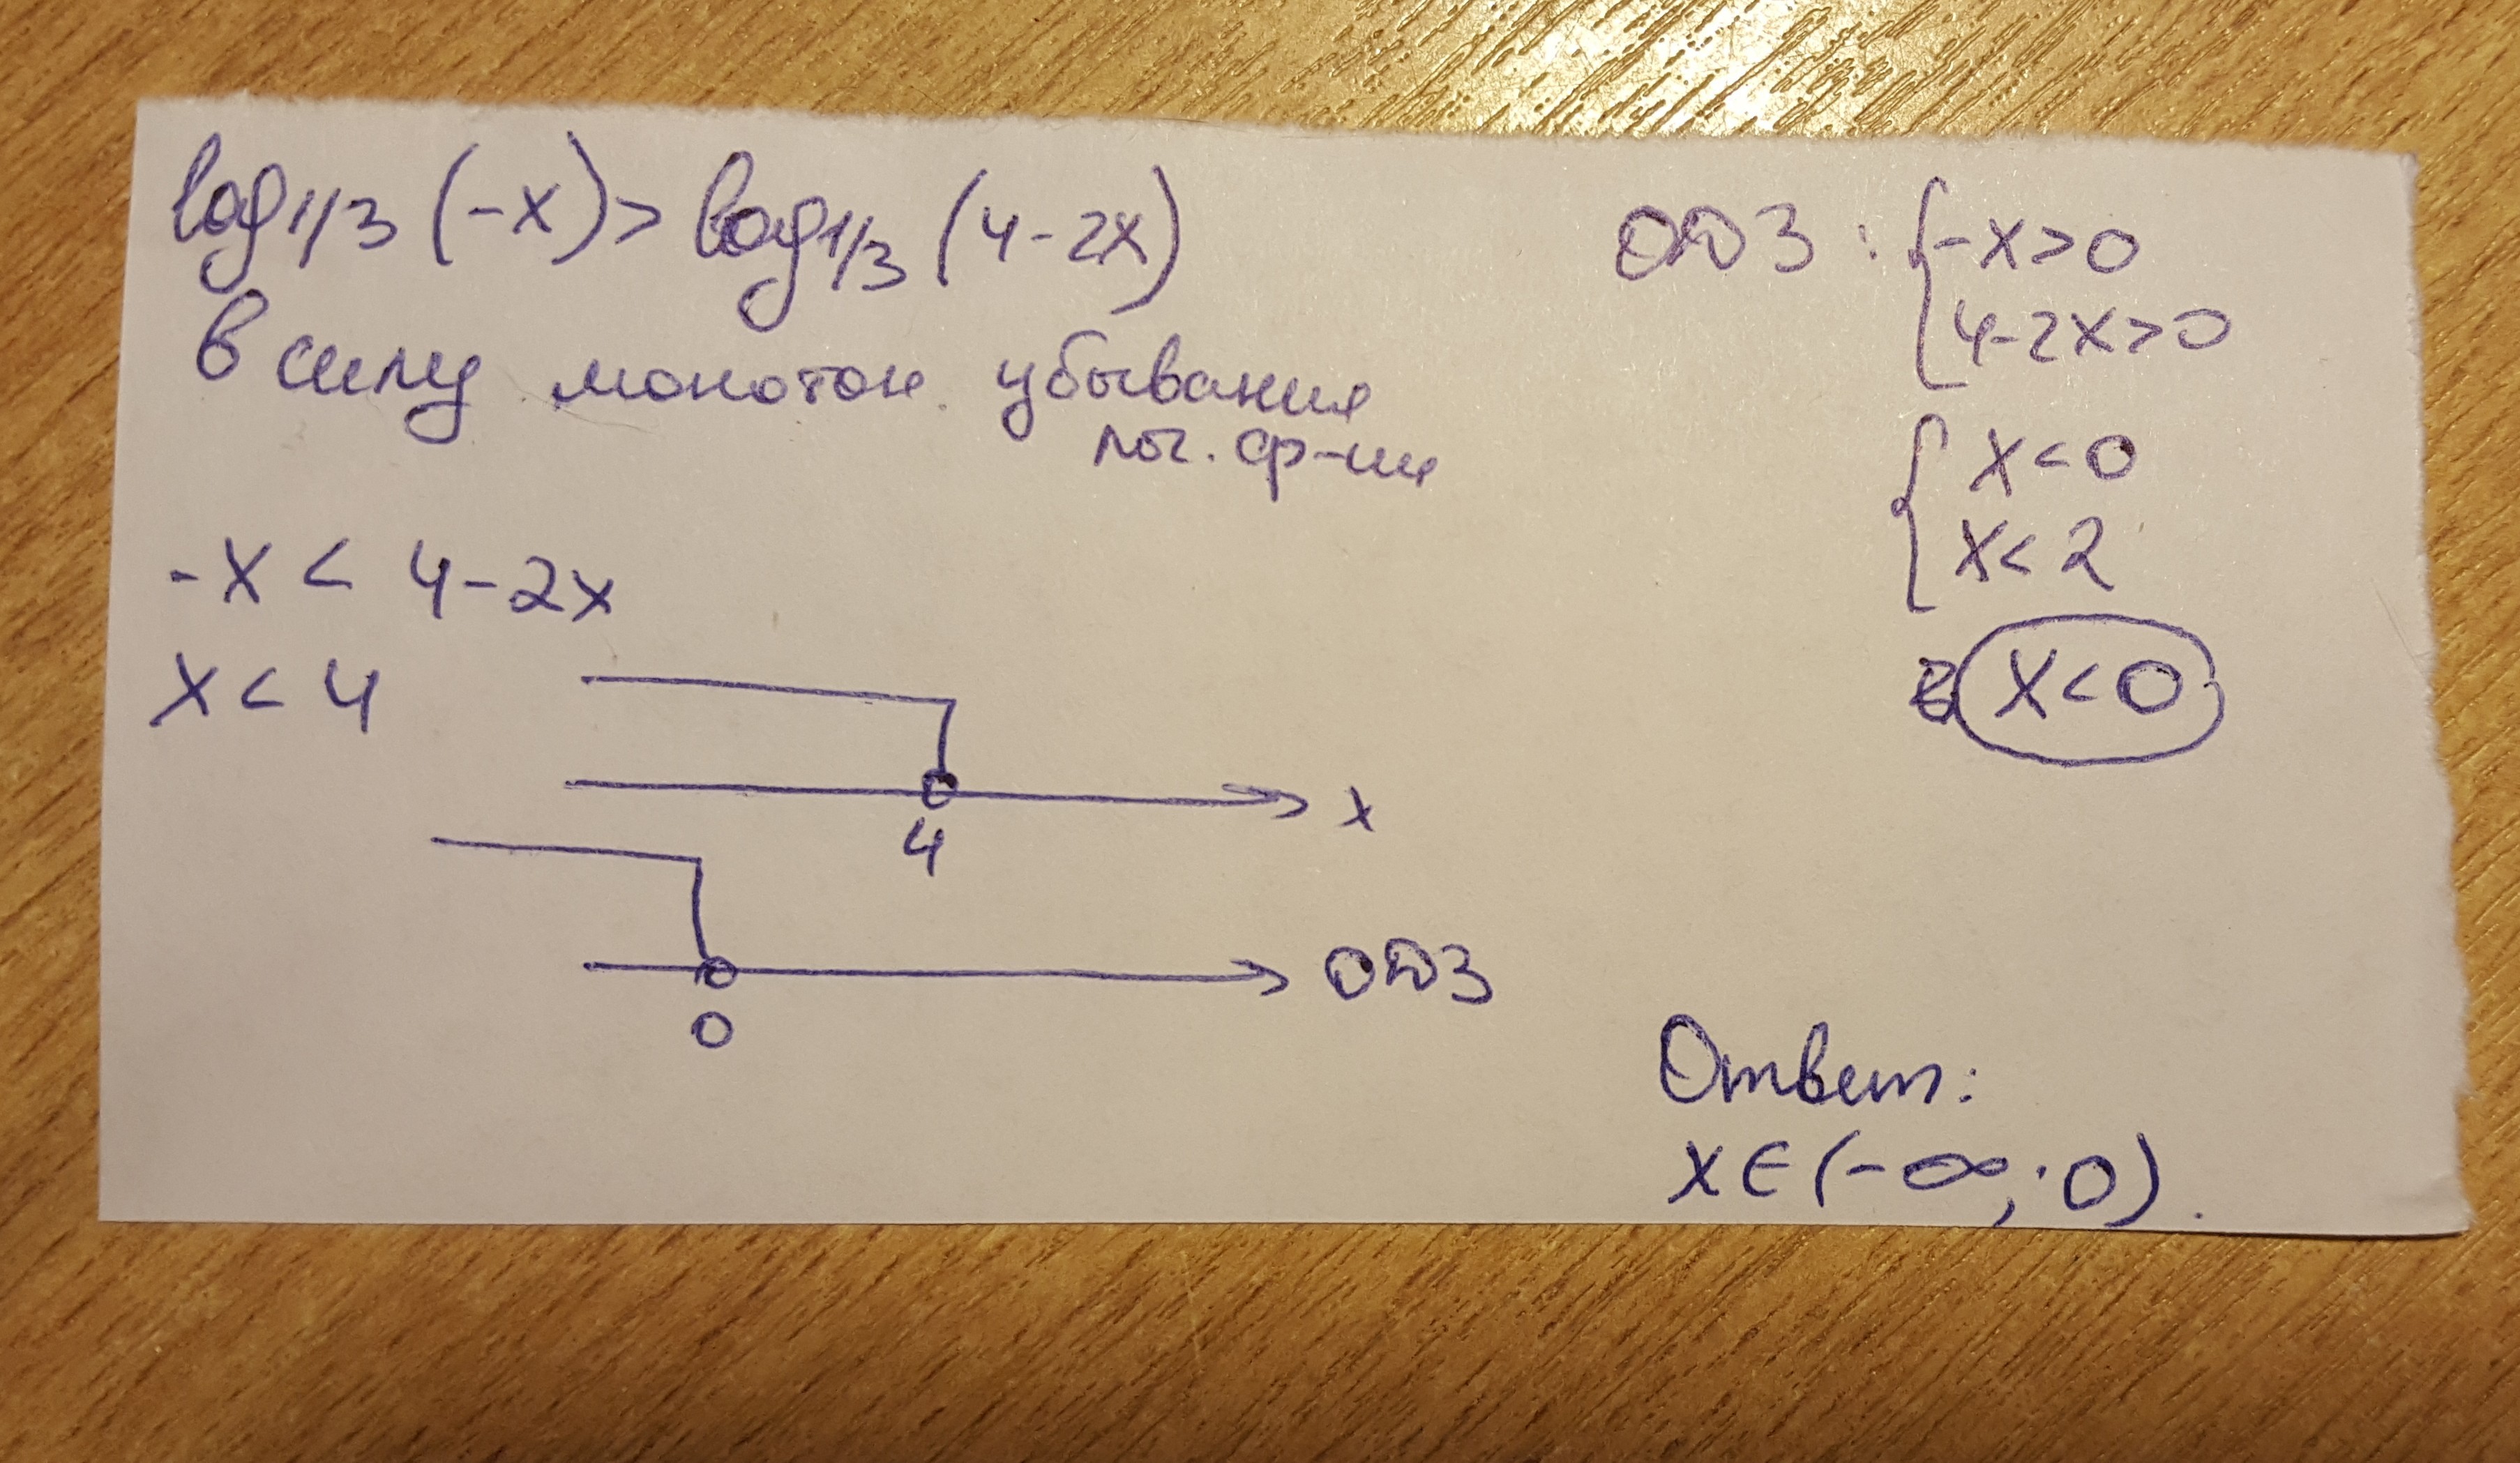 log1/3 (-x) > log1/3 (4-2x)
в силу монотон. убывания
лог. ф-ии
-x < 4-2x
x < 4
x
4
ОДЗ
0
ОДЗ : { -x>0
4-2x>0
{ x<0
x<2
x<0
Ответ:
x∈(-∞; 0).